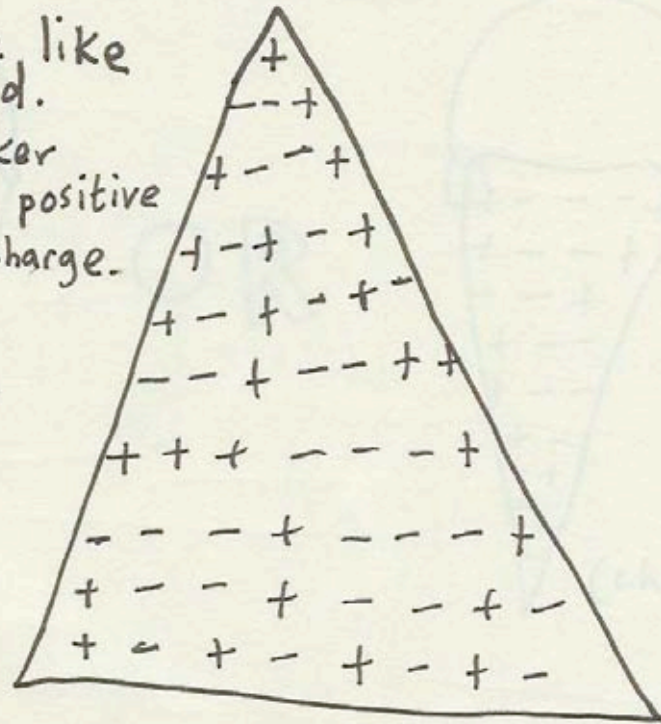 like
d.
ker
positive
harge.
+
- - +
+ - - +
+ - + - +
+ - + - + -
- - + - - + +
+ + + - - - +
- - - + - - - +
+ - - + - - + -
+ - + - + - + -